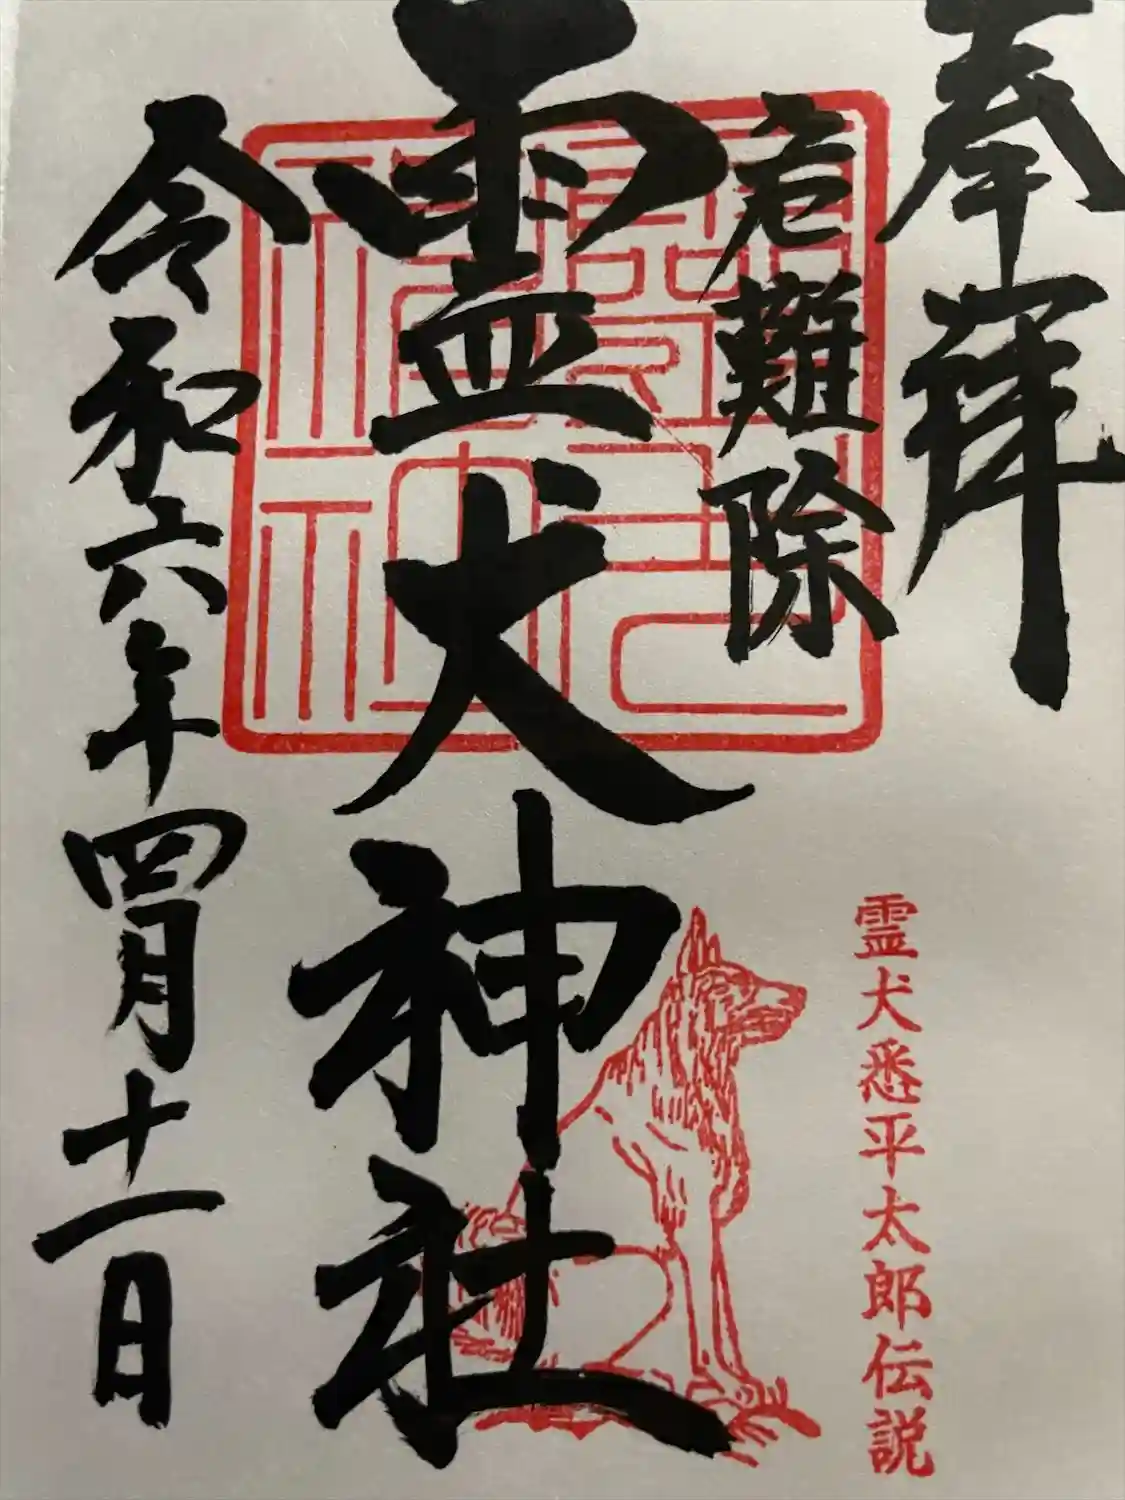 奉拝
危難除
霊犬神社
令和六年四月十一日
霊犬悉平太郎伝説